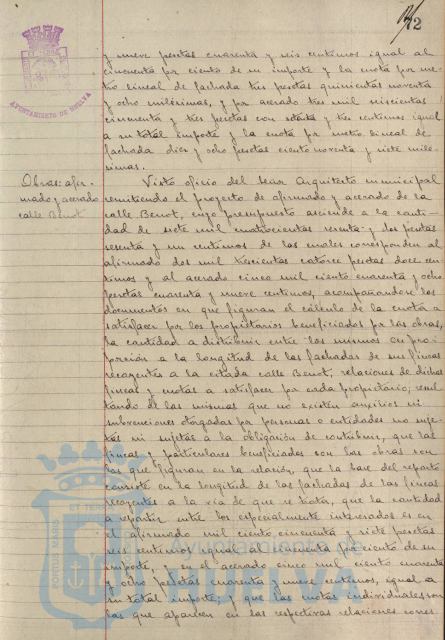 72
AYUNTAMIENTO DE HUELVA
y nueve pesetas cuarenta y seis centimos igual al
cincuenta por ciento de su importe y la cuota por me-
tro lineal de fachada tres pesetas quinientas noventa
y ocho milésimas, y por acerado tres mil seiscientas
cincuenta y tres pesetas con setenta y tres centimos igual
a su total importe y la cuota por metro lineal de
fachada diez y ocho pesetas ciento noventa y siete milé-
simas.
Obras: afir-
mado y acerado
calle Benot
Visto oficio del Señor Arquitecto municipal
remitiendo el proyecto de afirmado y acerado de la
calle Benot, cuyo presupuesto asciende a la canti-
dad de siete mil cuatrocientas sesenta y dos pesetas
sesenta y un centimos de las cuales corresponden al
afirmado dos mil trescientas catorce pesetas doce cen-
timos y al acerado cinco mil ciento cuarenta y ocho
pesetas cuarenta y nueve centimos, acompañandose los
documentos en que figuran el cálculo de la cuota a
satisfacer por los propietarios beneficiados por las obras,
la cantidad a distribuir entre los mismos en pro-
porción a la longitud de las fachadas de sus fincas
recayentes a la citada calle Benot, relaciones de dichas
fincas y cuotas a satisfacer por cada propietario; resul-
tando de las mismas que no existen auxilios ni
subvenciones otorgadas por personas o entidades no suje-
tas ni sujetas a la obligación de contribuir, que las
fincas y particulares beneficiados con las obras son
los que figuran en la relación, que la base del reparto
consiste en la longitud de las fachadas de las fincas
recayentes a la vía de que se trata, que la cantidad
a repartir entre los especialmente interesados es en
el afirmado mil ciento cincuenta y siete pesetas
seis centimos igual al cincuenta por ciento de su
importe, y en el acerado cinco mil ciento cuarenta
y ocho pesetas cuarenta y nueve centimos, igual a
su total importe; y que las cuotas individuales son
las que aparecen en las respectivas relaciones corres-